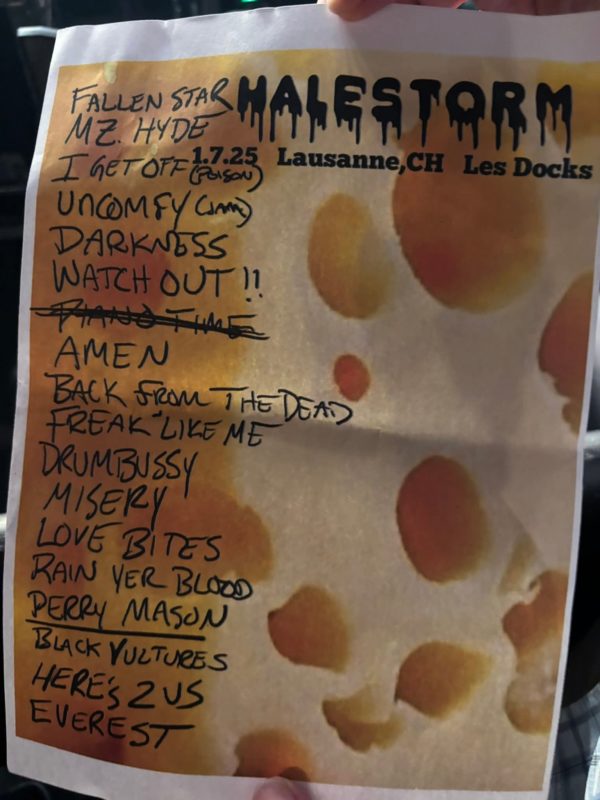 HALESTORM
1.7.25 Lausanne,CH Les Docks
FALLEN STAR
MZ. HYDE
I GET OFF (POISON)
UNCOMFY (JAM)
DARKNESS
WATCH OUT !!
PIANO TIME
AMEN
BACK FROM THE DEAD
FREAK LIKE ME
DRUMBUSSY
MISERY
LOVE BITES
RAIN YER BLOOD
PERRY MASON
BLACK VULTURES
HERE'S 2 US
EVEREST